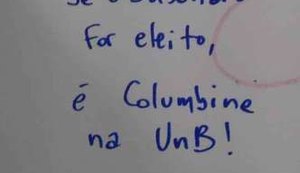 For eleito,
é Columbine
na UnB!